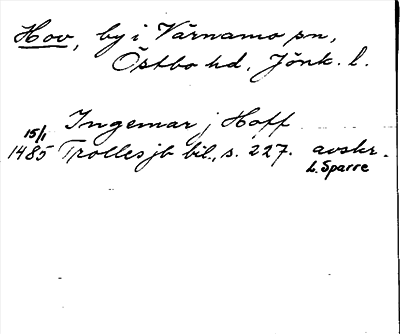 Hov, by i Värnamo sn,
Östbo hd, Jönk. l.
Ingemar j Hoff
15/1
1485 Trollesjb bil., s. 227. avskr.
L. Sparre